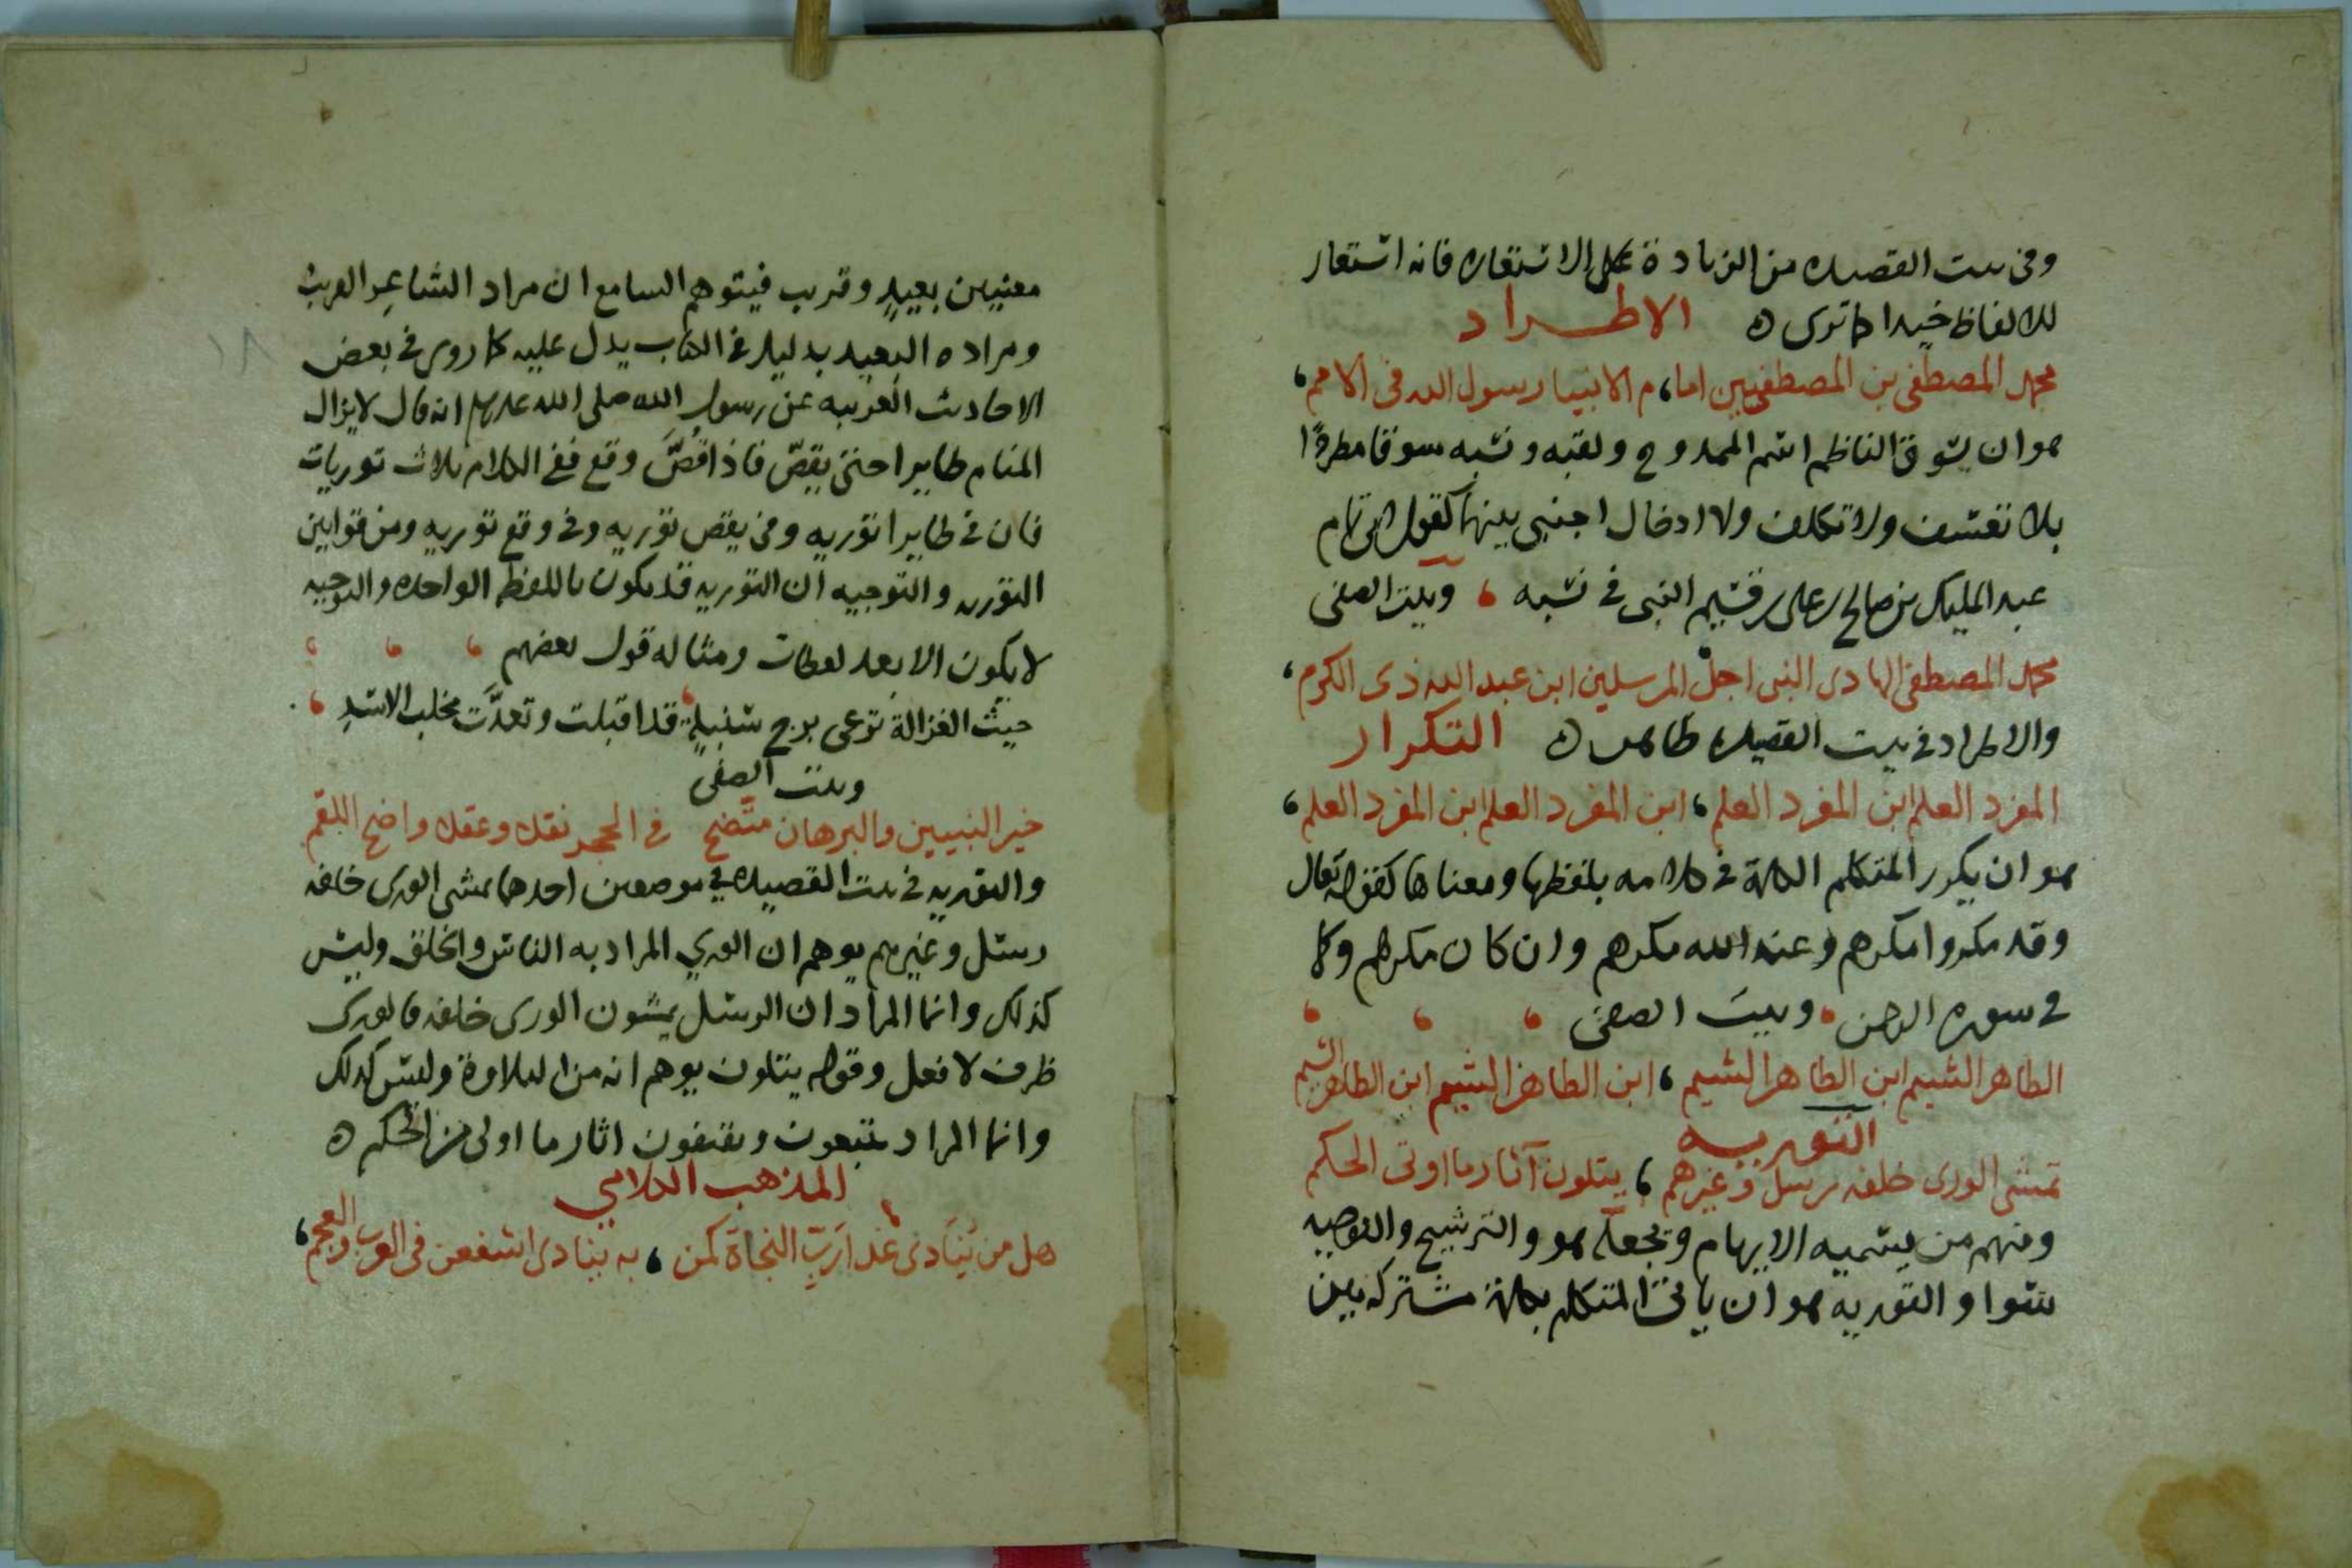 وفى بيت القصيده من الزيادة على الاستعاره فانه استعار
للالفاظ خيدا كما ترى ه الاطـــراد
محمد المصطفى بن المصطفيين اما، م الانبيا رسول الله فى الامم،
هو ان يسوق الناظم اسم الممدوح ولقبه ونسبه سوقا مطردًا
بلا تعسف ولا تكلف ولا ادخال اجنبى بينها كقول ابى تمام
عبد المليك بن صالح بن على بن قسيم النبى فى نسبه ، وبيت الصفى
محمد المصطفى الهادى النبى اجل المرسلين ابن عبد الله ذى الكرم،
والاطراد فى بيت القصيده ظاهر ه التكرار
المفرد العلم ابن المفرد العلم، ابن المفرد العلم ابن المفرد العلم،
هو ان يكرر المتكلم الكلمة فى كلامه بلفظها ومعناها كقوله تعالى
وقد مكروا مكرهم وعند الله مكرهم وان كان مكرهم وكما
فى سوره الرحمن ، وبيت الصفى ، ، ،
الطاهر الشيم ابن الطاهر الشيم، ابن الطاهر الشيم ابن الطاهر الشيم
التوريـه
تمشى الورى خلفه رسل وغيرهم ، يتلون آثار ما اوتى الحكم
ومنهم من يسميه الايهام ويجعله هو والترشيح والتوجيه
سوا والتوريه هو ان ياتى المتكلم بكلمة مشتركه بين
معنيين بعيدٍ وقريب فيتوهم السامع ان مراد الشاعر القريب
ومراده البعيد بدليل فى الكتاب يدل عليه كما روى فى بعض
الاحاديث الغريبه عن رسول الله صلى الله عليه وسلم انه قال لا يزال
المنام طايرا حتى يقصّ فاذا قُصَّ وقع ففى الكلام ثلاث توريات
فان فى طايرا توريه وفى يقص توريه وفى وقع توريه ومن قوانين
التوريه والتوجيه ان التوريه قد يكون باللفظه الواحده والتوجيه
لا يكون الا بعد لفظات ومثاله قول بعضهم ، ، ،
حيث الغزالة ترعى برج سنبلةٍ، قد اقبلت وتعدَّت مخلب الاسَدِ ،
وبيت الصفى
خير النبيين والبرهان متضح فى الحجر نقلا وعقلا واضح اللقم
والتوريه فى بيت القصيده فى موضعين احدهما يمشى الورى خلفه
رسل وغيرهم يوهم ان الورى المراد به الناس والخلق وليس
كذلك وانما المراد ان الرسل يمشون الورى خلفه فالورى
ظرف لا فعل وقوله يتلون يوهم انه من التلاوة وليس كذلك
وانما المراد يتبعون ويقتفون اثار ما اولى من الحكم ه
المذهب الكلامي
هل من يُنَادى غدا رَبِّ النجاةَ كمن ، به ينادى اشفعن فى العرب والعجم،